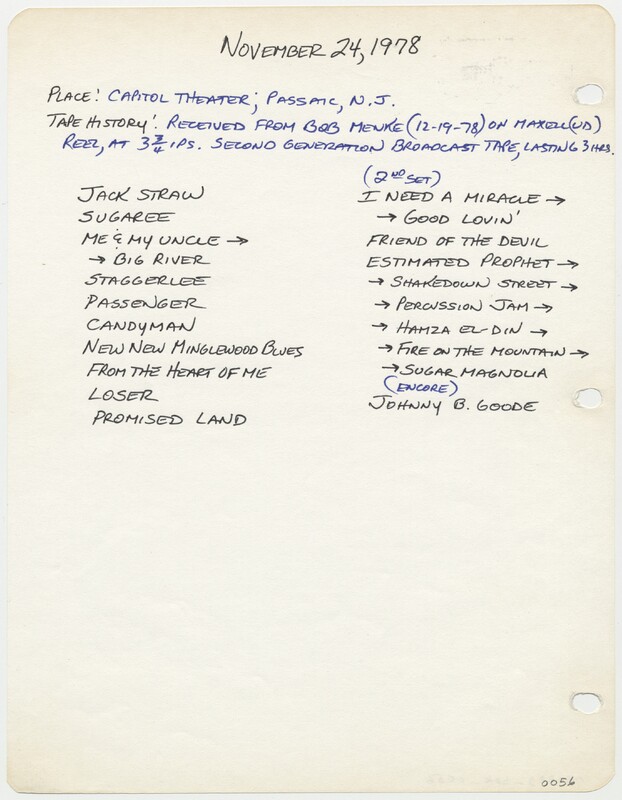 NOVEMBER 24, 1978
PLACE: CAPITOL THEATER; PASSAIC, N.J.
TAPE HISTORY: RECEIVED FROM BOB MENKE (12-19-78) ON MAXELL (UD)
REEL, AT 3 3/4 IPS. SECOND GENERATION BROADCAST TAPE, LASTING 3 HRS.
JACK STRAW
SUGAREE
ME & MY UNCLE →
→ BIG RIVER
STAGGERLEE
PASSENGER
CANDYMAN
NEW NEW MINGLEWOOD BLUES
FROM THE HEART OF ME
LOSER
PROMISED LAND
(2ND SET)
I NEED A MIRACLE →
→ GOOD LOVIN'
FRIEND OF THE DEVIL
ESTIMATED PROPHET →
→ SHAKEDOWN STREET →
→ PERCUSSION JAM →
→ HAMZA EL-DIN →
→ FIRE ON THE MOUNTAIN →
→ SUGAR MAGNOLIA
(ENCORE)
JOHNNY B. GOODE
0056